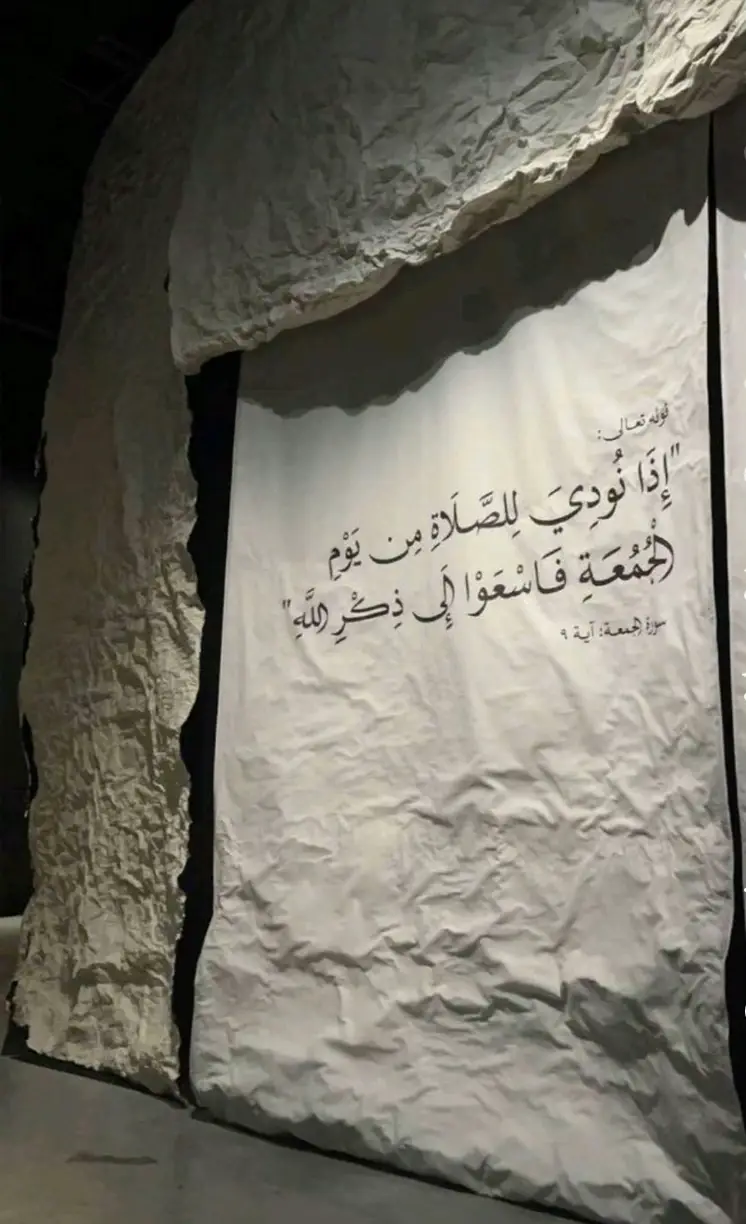 قوله تعالى:
"إِذَا نُودِيَ لِلصَّلَاةِ مِن يَوْمِ
الْجُمُعَةِ فَاسْعَوْا إِلَى ذِكْرِ اللَّهِ"
سورة الجمعة: آية ٩